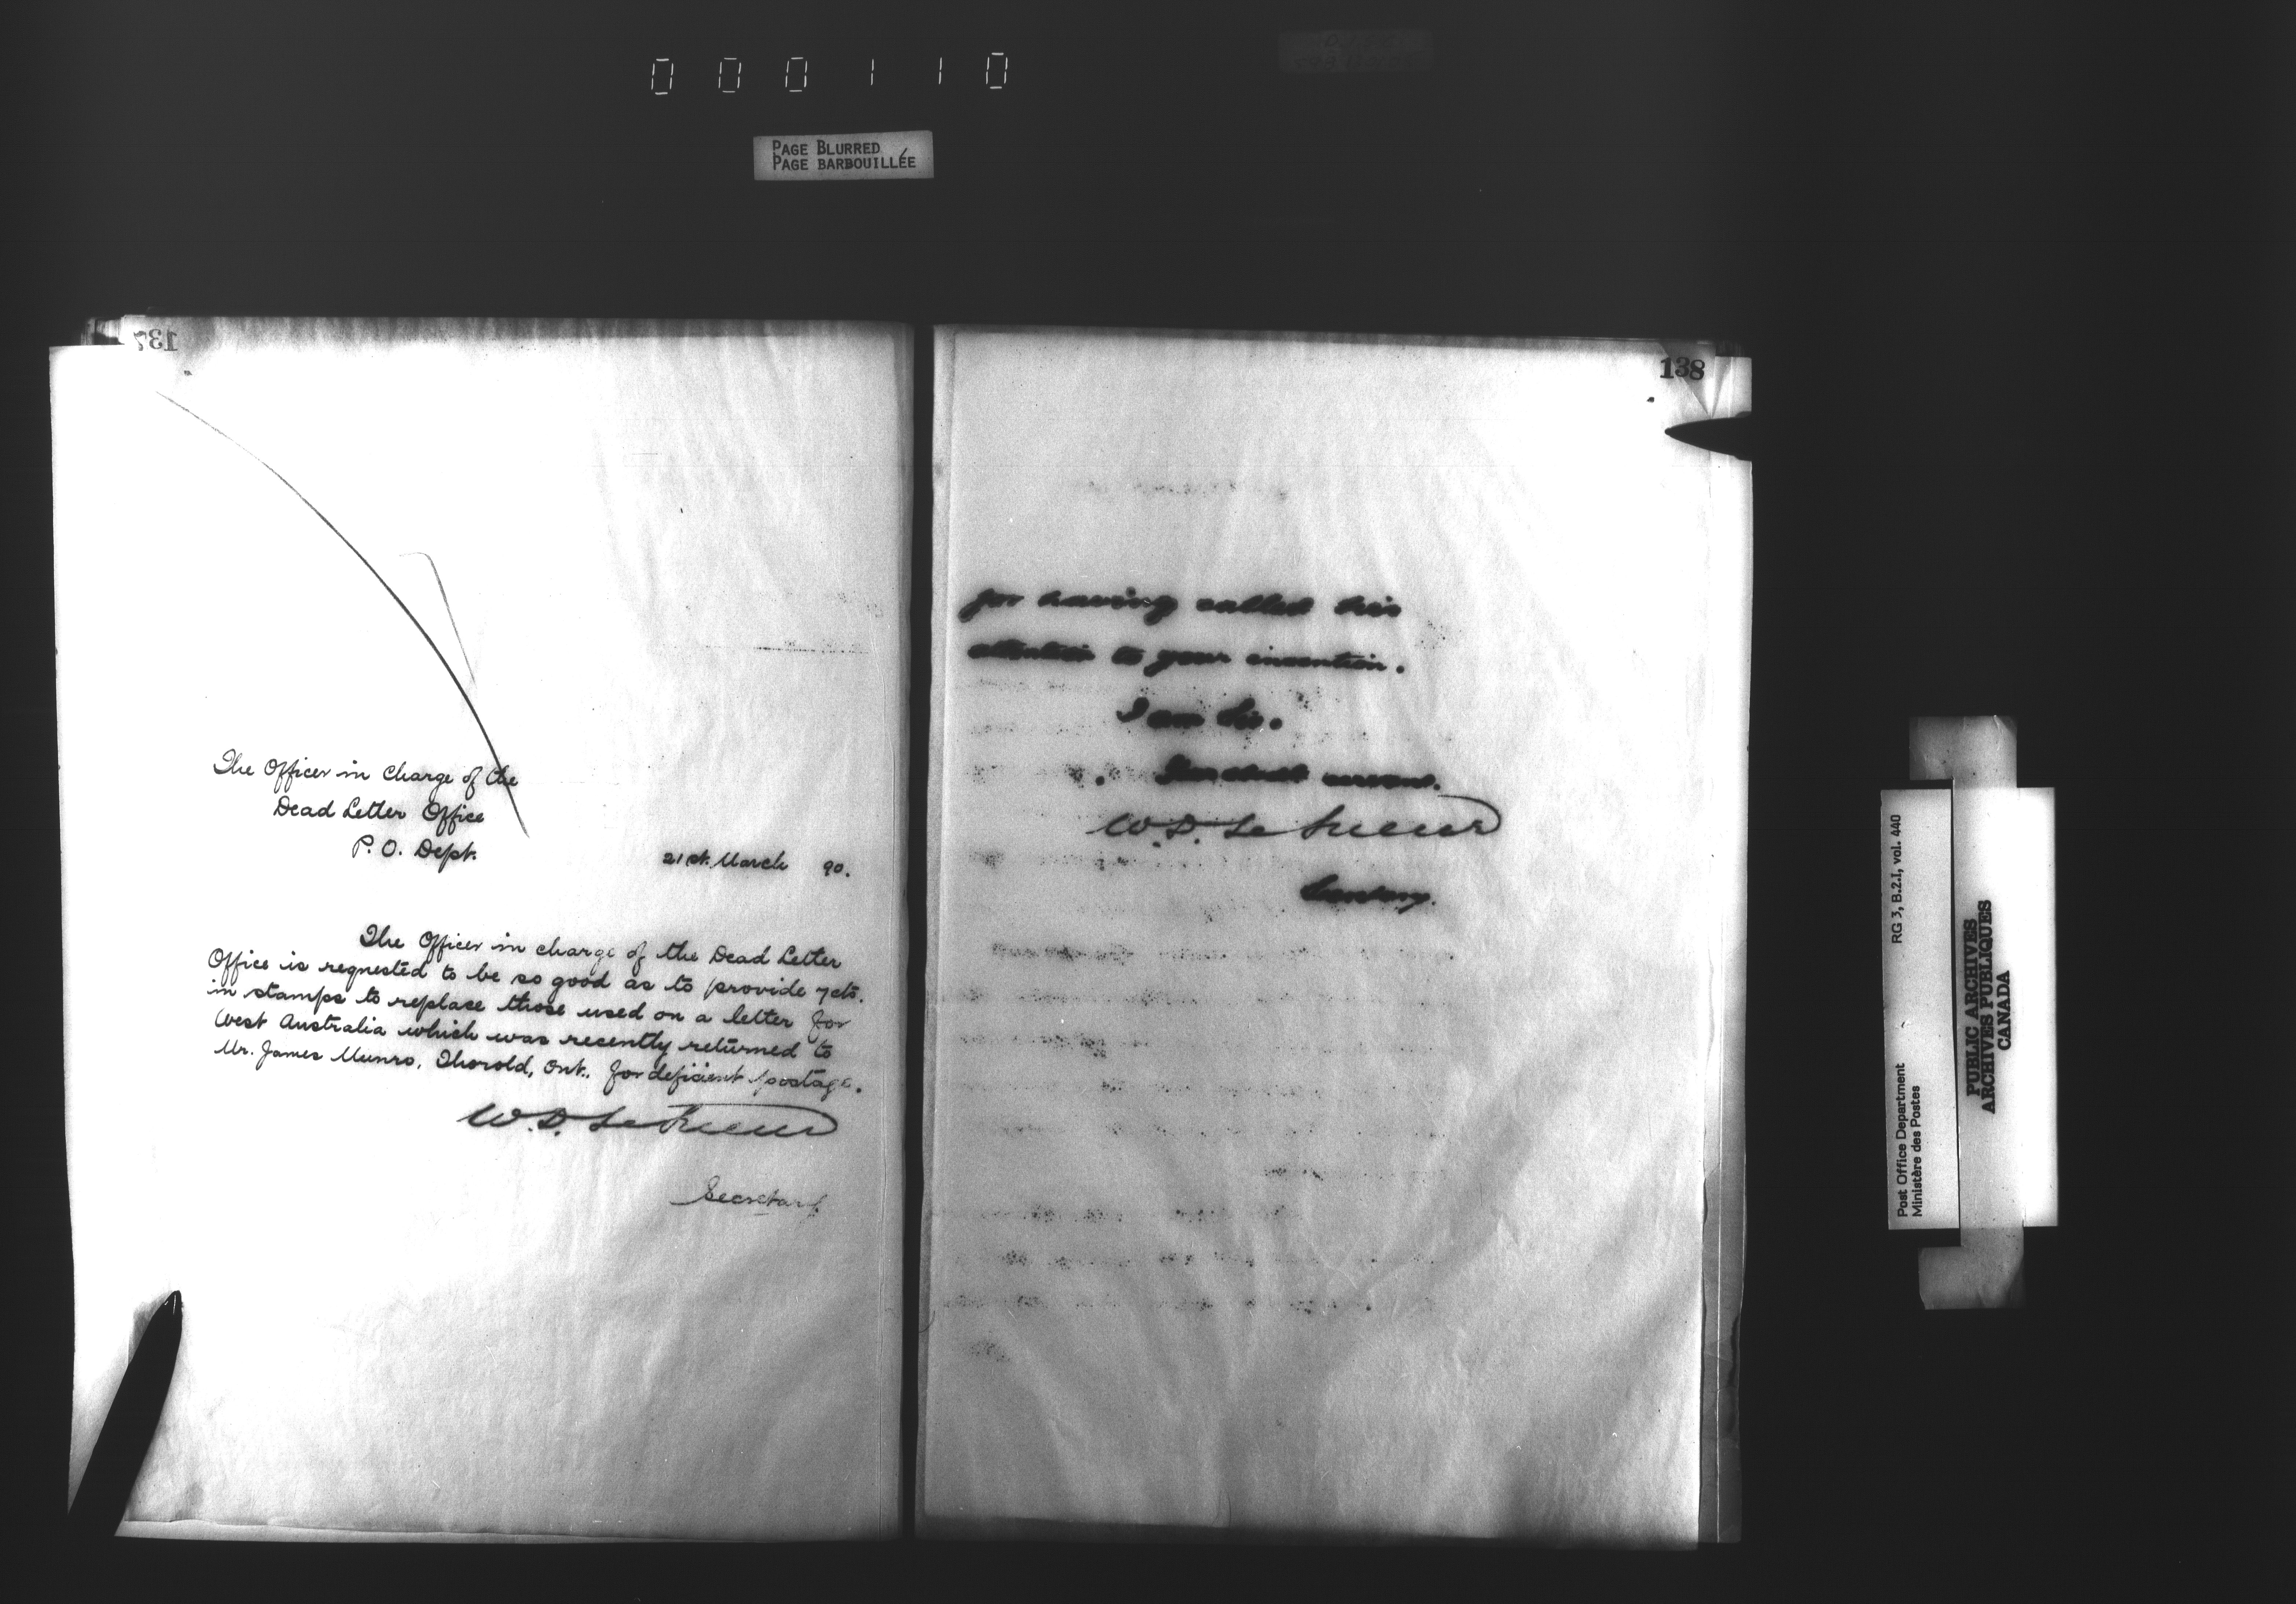 000110
PAGE BLURRED
PAGE BARBOUILLÉE
137
The Officer in Charge of the
Dead Letter Office
P. O. Dept.
21st. March 90.
The Officer in charge of the Dead Letter
Office is requested to be so good as to provide 7cts.
in stamps to replace those used on a letter for
West Australia which was recently returned to
Mr. James Munro, Thorold, Ont., for deficient postage.
W. D. LeSueur
Secretary.
138
for having called his
attention to your invention.
I am Sir.
Your obedt servant.
W. D. LeSueur
Secretary.
RG 3, B.2.I, vol. 440
Post Office Department
Ministère des Postes
PUBLIC ARCHIVES
ARCHIVES PUBLIQUES
CANADA